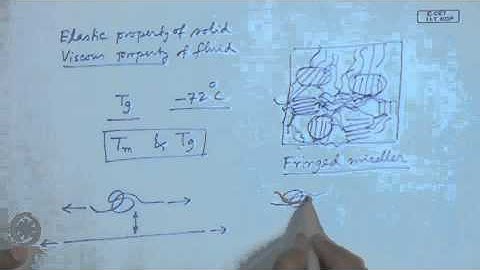 Elastic property of solid
Viscous property of fluid
Tg -72°C
Tm & Tg
Fringed micelles